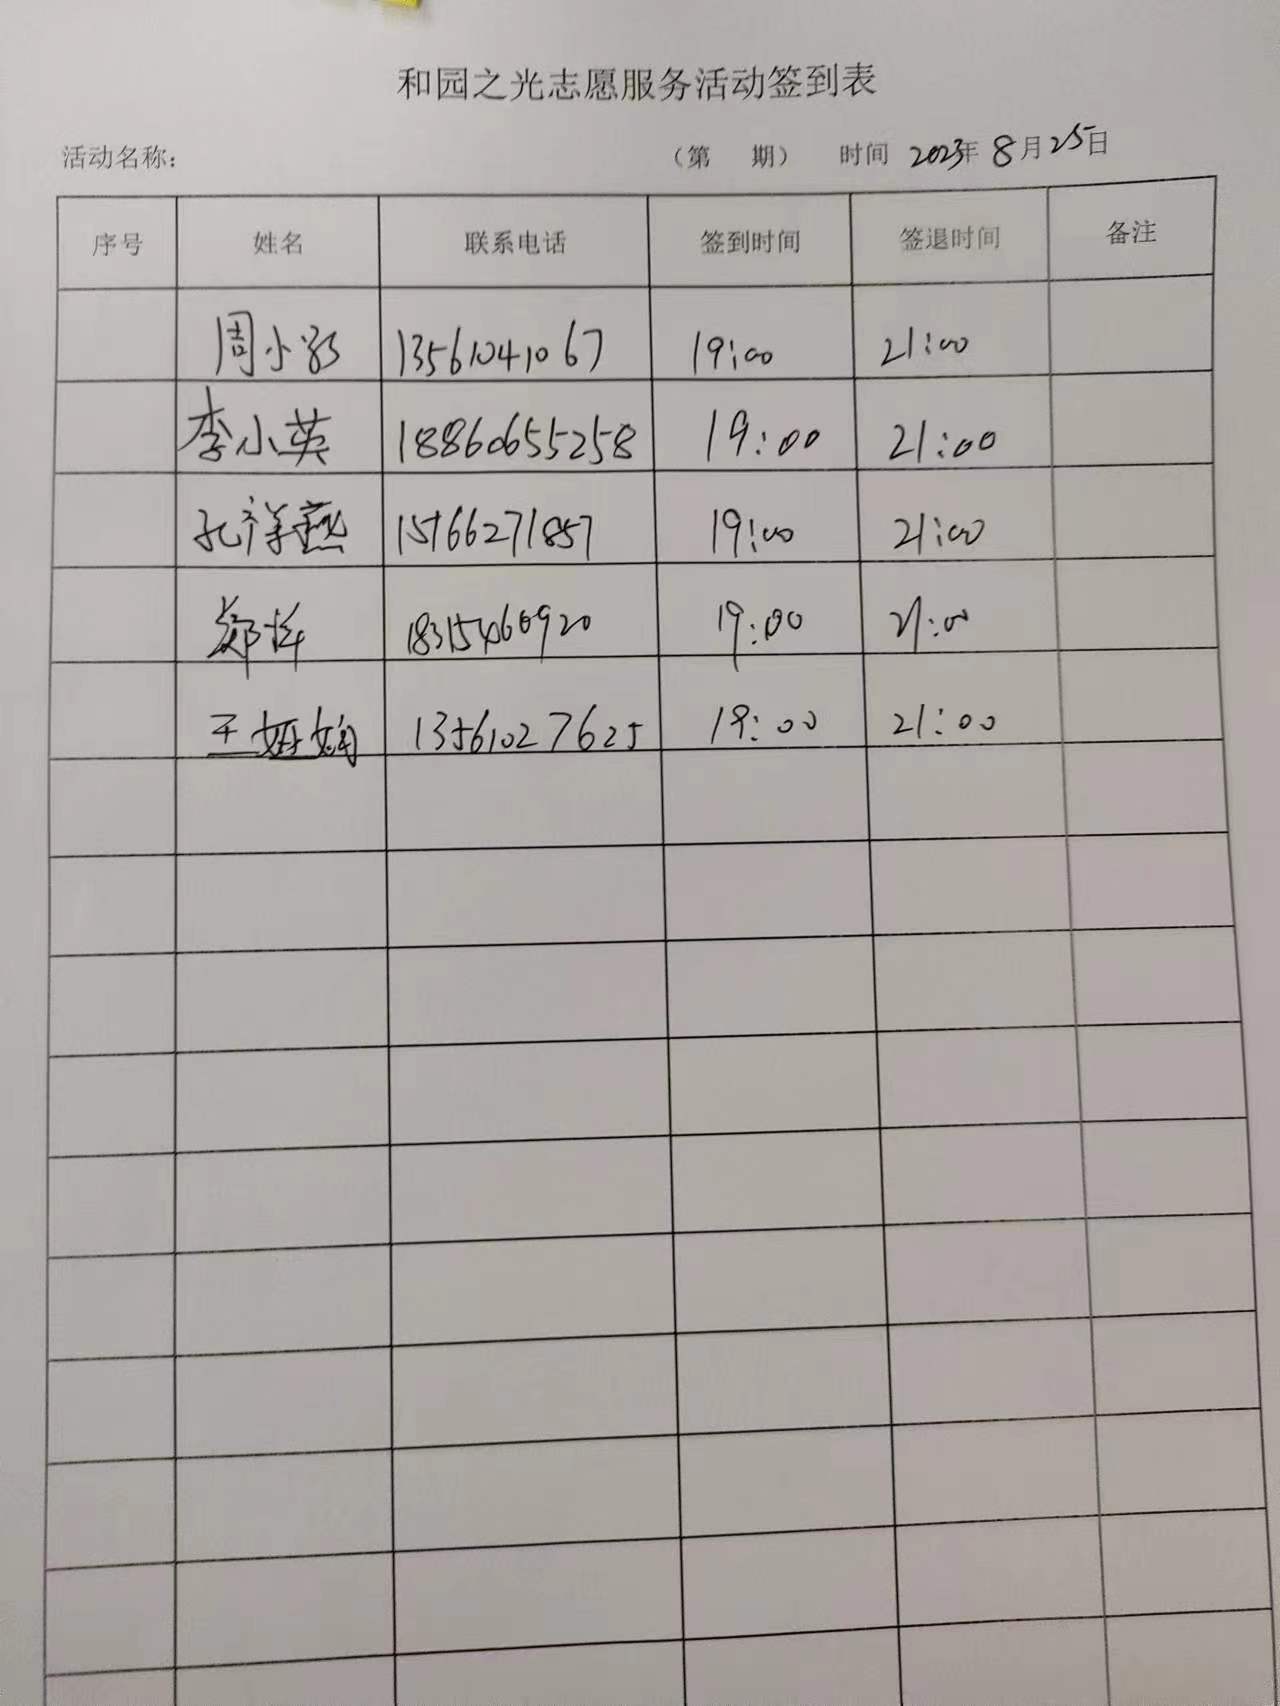 和园之光志愿服务活动签到表
活动名称： （第 期） 时间 2023年 8月25日
序号 姓名 联系电话 签到时间 签退时间 备注
周小 13561041067 19:00 21:00
李小英 18860655258 19:00 21:00
孔祥燕 15166271857 19:00 21:00
郑 18315466920 19:00 21:00
王 娟 13561027625 19:00 21:00